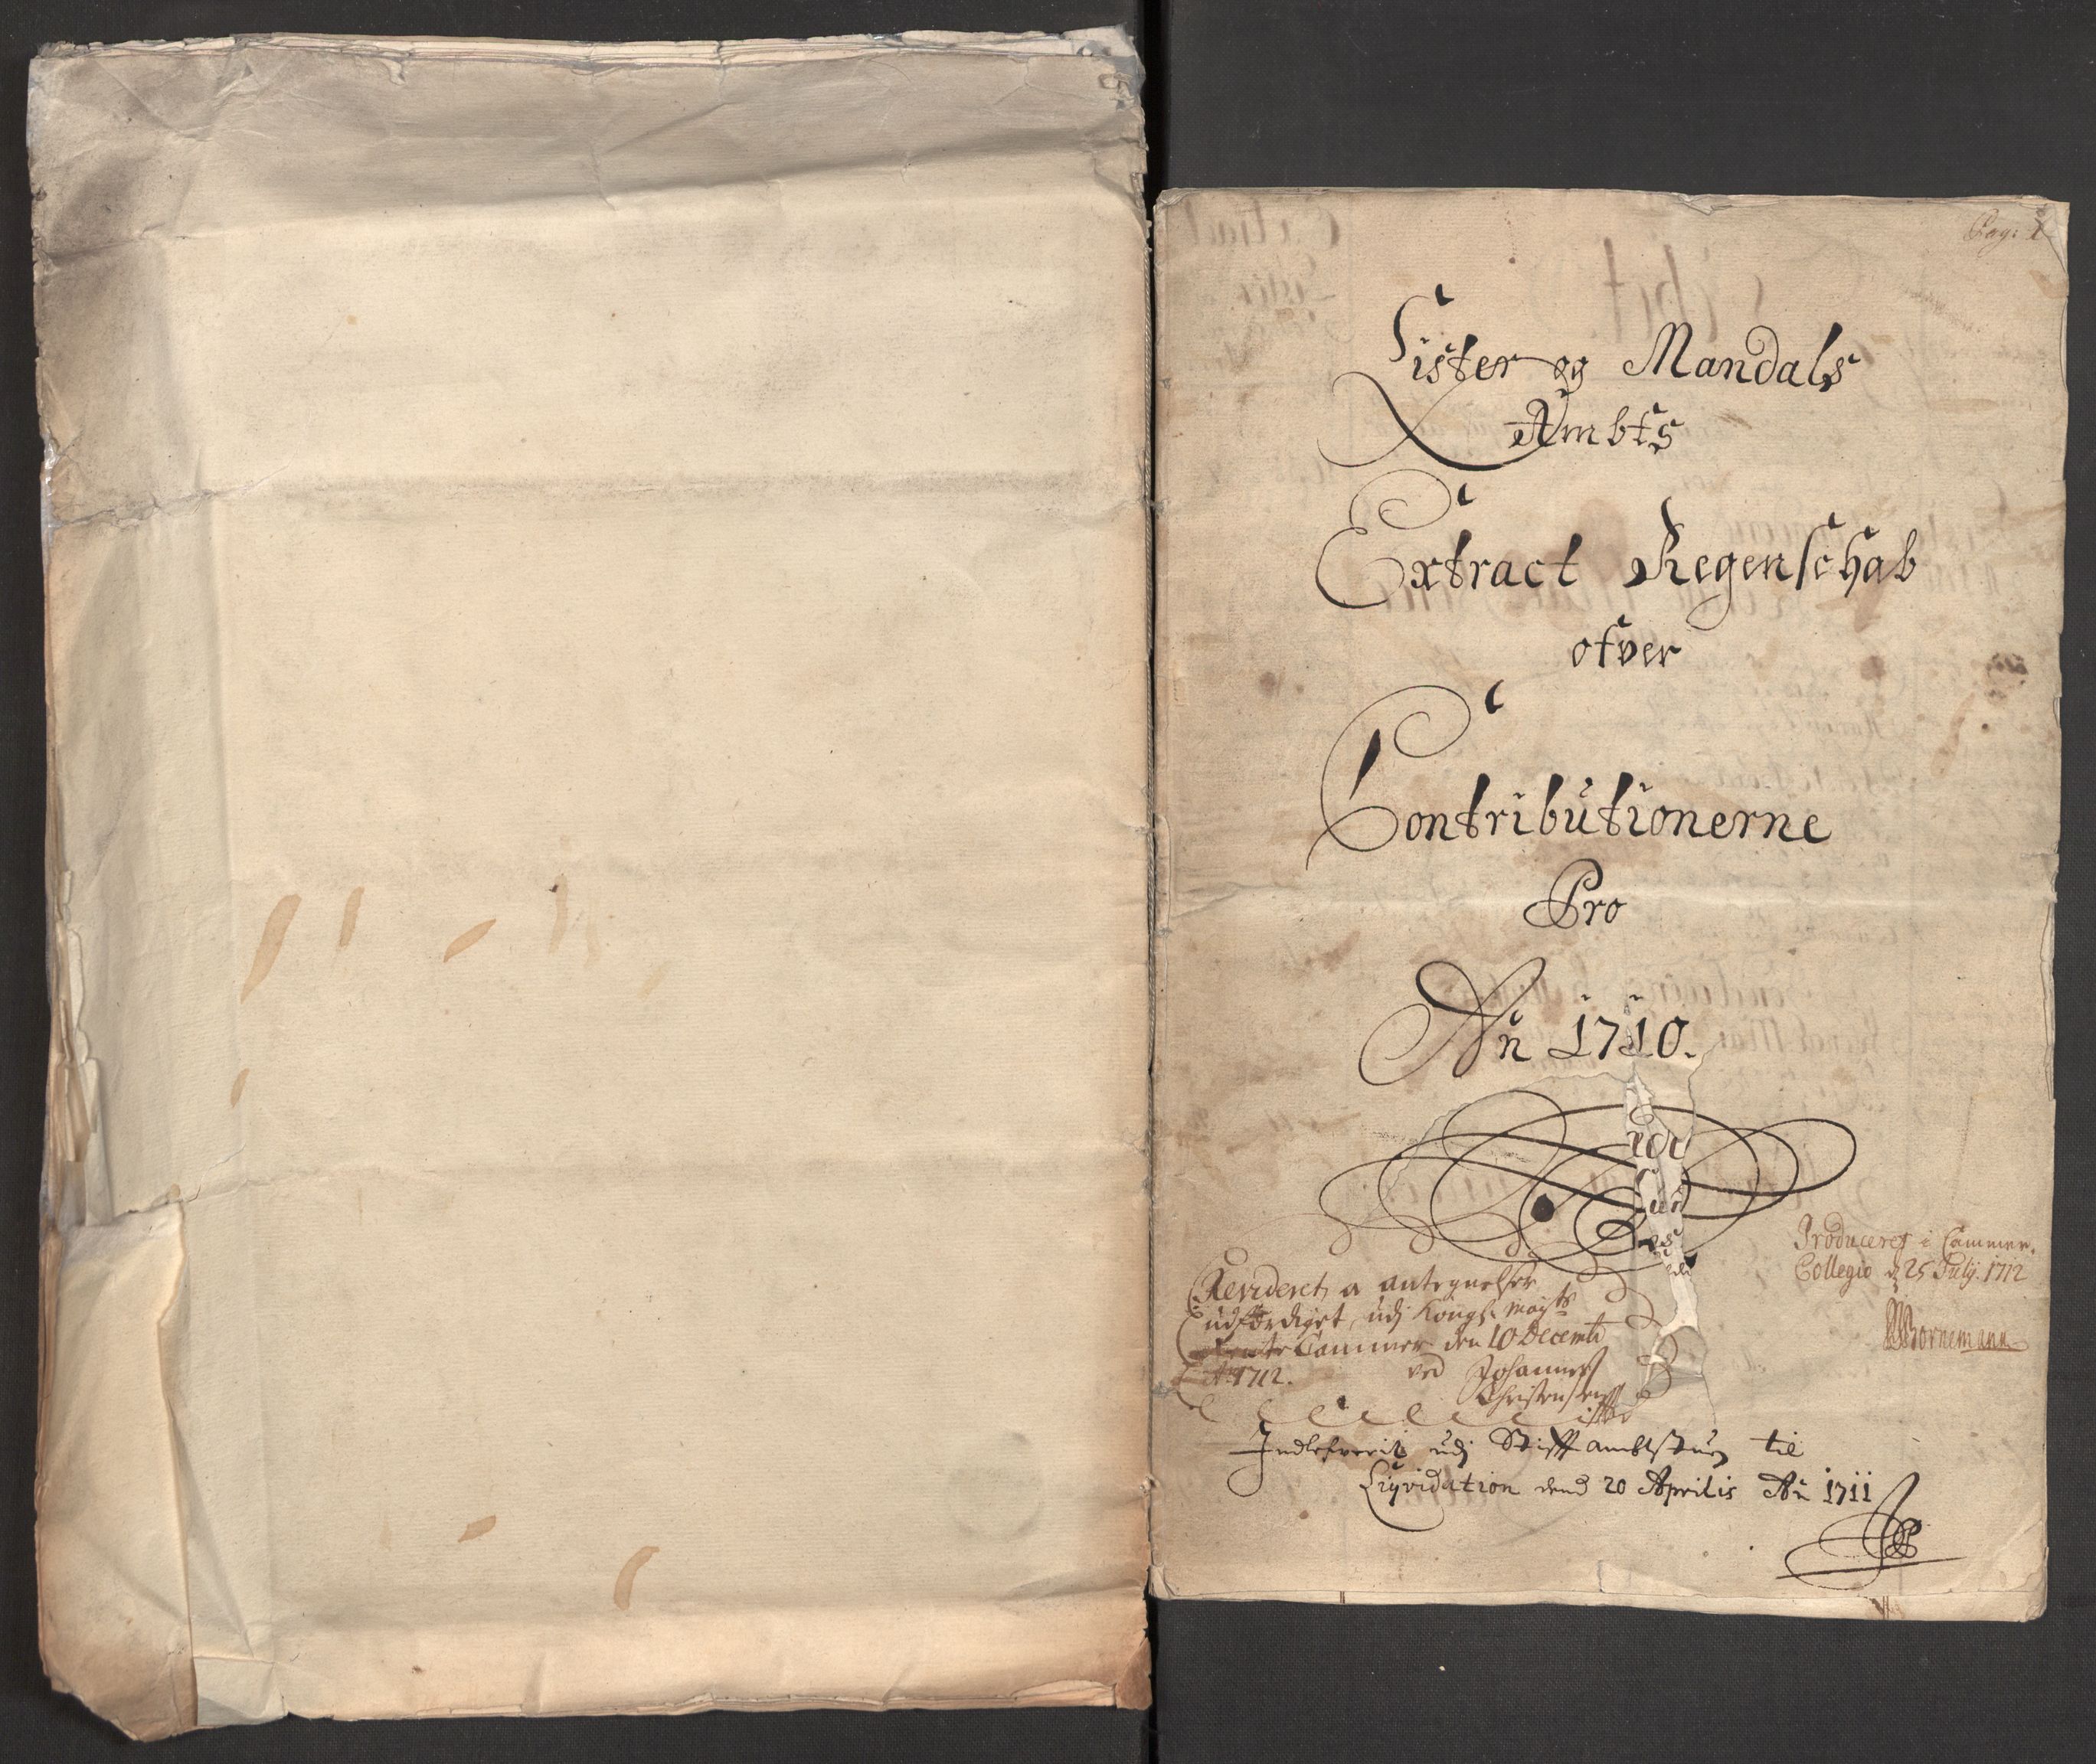 Pag: 1
Lister og Mandals
Ambts
Extract Regenschab
ofver
Contributionerne
Pro
Añ 1710.
Produceret i Cammer
Collegio d 25 Julij. 1712
Bornemann
Revideret, a antegnelser
udferdiget, udj Kongl: Mayts
Rente Cammer den 10 Decemb
Ao 1712. ved Johannes
Christensen
Indlefverit udj Stiftambtstuen til
Liqvidation dend 20 Aprilis Añ 1711